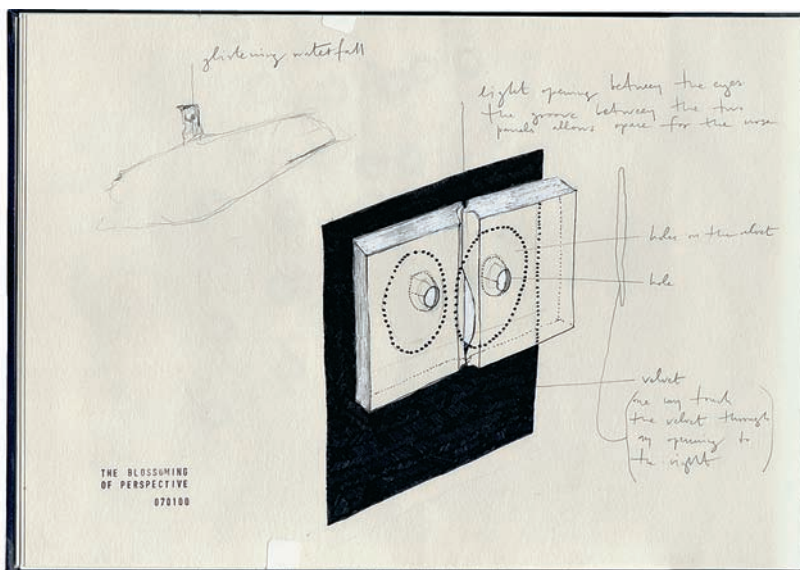 glistening waterfall
light opening between the eyes
the groove between the two
panels allows space for the nose
holes in the velvet
hole
velvet
one may touch
the velvet through
an opening to
the right
THE BLOSSOMING
OF PERSPECTIVE
070100